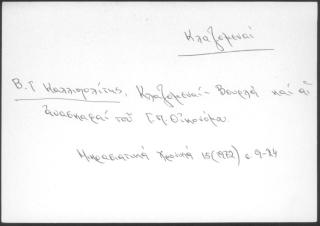 Κλαζομεναί
Β.Γ Καλλιπολίτης, Κλαζομεναί - Βουρλά καί αἱ
ἀνασκαφαί τοῦ Γ.Π. Οἰκονόμου
Μικρασιατικά Χρονικά 15 (1972) σ 9-24